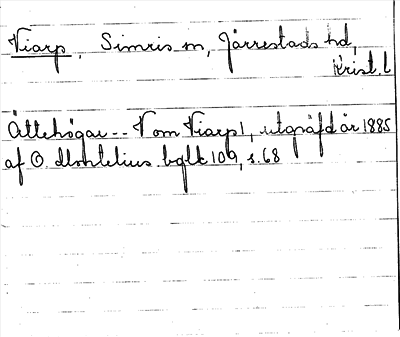 Viarp, Simris sn, Järrestads hd,
Krist. l
Ättehögar -- V om Viarp 1, utgräfd år 1885
af O. Montelius bglk 109, s. 68